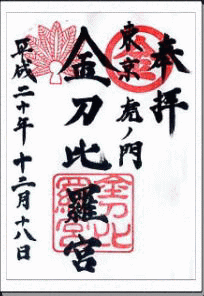 奉拝
東京虎ノ門
金刀比羅宮
平成二十年十二月十八日
金
金刀比羅宮